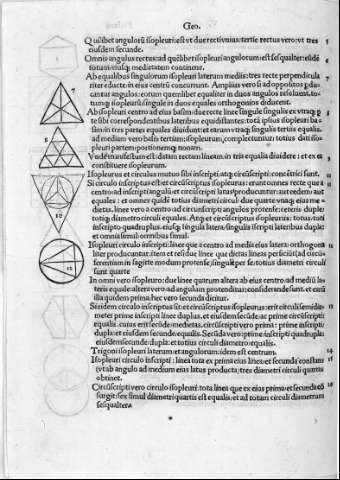 Geo.
Quilibet angulorū isopleuri: est vt duę rectivnius: tertie rectus vero: vt tres 5
eiusdem secunde.
Omnis angulus rectus: ad quēlibet isopleuri angulorum: est sesqualter: eidē 6
totum: eiusq; medietatem continens.
Ab equalibus singulorum isopleuri laterum mediis: tres recte perpendicula 7
riter educte: in eius centrū concurrunt. Amplius vero si ad oppositos ꝓdu-
cantur angulos: eorum quemlibet equaliter in duos angulos resoluent. to-
tumq; isopleurū singulę in duos equales orthogonios diducent.
Ab isopleuri centro ad eius basim: due recte linee singule singulis ex vtraq; p 8
te sibi correspondentibus lateribus equidistantes: totā ipsius isopleuri ba
sim in tres partes equales diuidunt: et earum vtraq; singulis tertiis equalis.
ad medium vero basis tertium: isopleurum, complectuntur: totius dati iso-
pleuri partem: portionemq; nonam.
Vnde manifestum est: datam rectam lineam: in tris equalia diuidere: et ex ea 9
constituere isopleurum.
Isopleurus et circulus mutuo sibi inscripti: atq; circūscripti: concētrici sunt. 10
Si circulo inscriptus est: et circūscriptus isopleurus: erunt omnes recte quę a 11
centro ad inscripti angulū: et circūscripti latus producuntur: aut eedem: aut
equales: et omnes quidē totius diametri circuli due quarte vnaq; eius me-
dietas. linee vero a centro ad circunscripti angulos protense: eteriis duplę:
totiq; diametro circuli equales. Atq; et circūscriptus isopleurus: totus: toti
inscripto quadruplus. eiusq; singula latera: singulis iscripti lateribus dupla:
et omnia simul: omnibus simul.
Isopleuri circulo inscripti: linee que a centro ad mediū eius latera: orthogono 12
liter producuntur: item et residue lineę que dictas lineas perficiūt (ad circū-
ferentiam in sagitte modum protensę) singulę per se: totius diametri circuli
sunt quarte
In omni vero isopleuro: due linee quarum altera ab eius centro ad mediū la- 13
teris eque: altera vero ad angulum protenditur: considerande sunt. et erit
illa quidem prima: hec vero secunda dicitur.
Si eidem circulo inscriptus sit: et circūscriptus isopleurus: erit circuli semidia-
meter prime inscripti lineę duplus. et eiusdem secūde: ac prime circūscripti
equalis. cuius erit secūde: medietas. circūscripti vero prima: prime inscripti
dupla: et eiusdem secundę: equalis. Secūda vero: prime inscripti quadrupla:
eiusdem secundę: dupla: et totius circuli diametro equalis.
Trigoni isopleuri laterum: et angulorum: idem est centrum. 14
Isopleuri circulo inscripti: linea tota ex prima eius linea: et secunda constans 15
(vt ab angulo ad medium eius latus producta) tres diametri circuli quartas
obtinet.
Circūscripti vero circulo isopleuri: tota linea que ex eius prima: et secunda cō 16
surgit: sex simul diametri quartis est equalis: et ad totam circuli diametrum
sesqualtera.